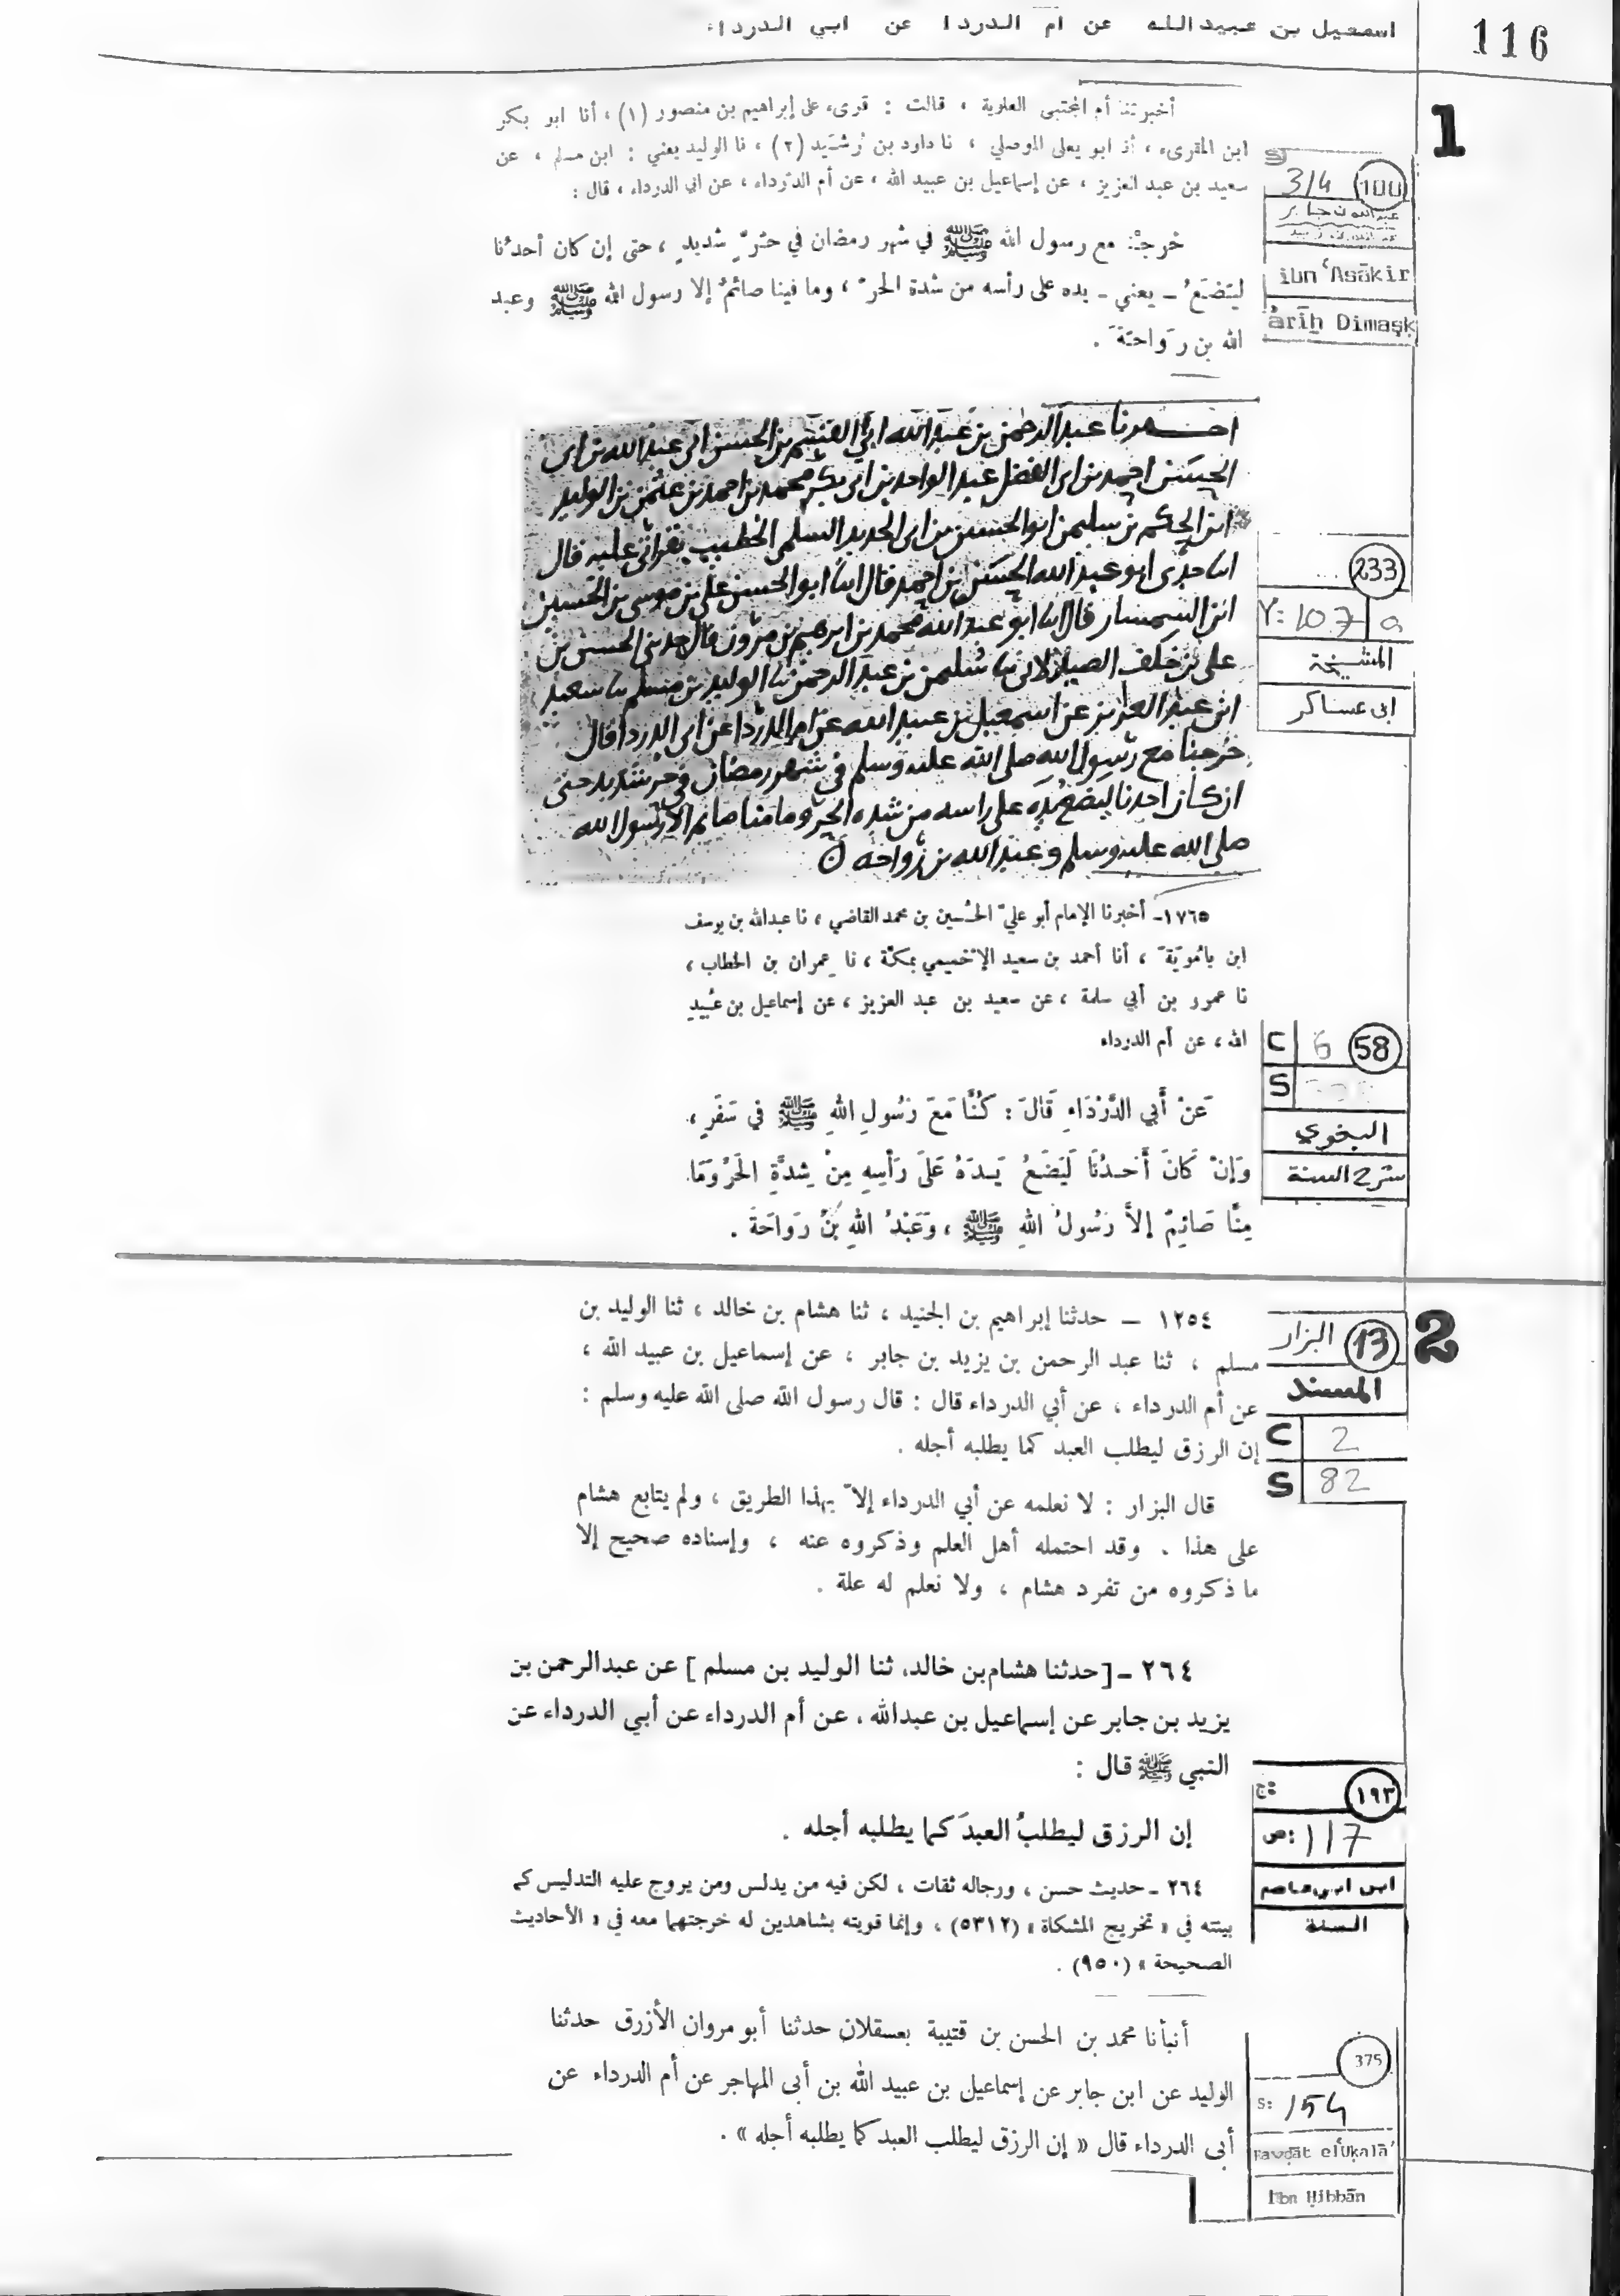 116
اسمعيل بن عبيد الله عن ام الدردا عن ابي الدرداء
1
أخبرتنا أم المجتبى العلوية ، قالت : قرىء على إبراهيم بن منصور (١) ، أنا ابو بكر
ابن المقرىء ، أنا ابو يعلى الموصلي ، نا داود بن رُشَيد (٢) ، نا الوليد يعني : ابن مسلم ، عن
سعيد بن عبد العزيز ، عن إسماعيل بن عبيد الله ، عن أم الدرداء ، عن ابي الدرداء ، قال :
خرجنا مع رسول الله ﷺ في شهر رمضان في حَرٍّ شديدٍ ، حتى إن كان أحدُنا
ليَضَعُ ـ يعني ـ يده على رأسه من شدة الحرّ ، وما فينا صائمٌ إلا رسول الله ﷺ وعبد
الله بن رَواحَةَ .
100
3/4
ibn ʿAsākir
ārīḫ Dimaşḳ
اخبرنا عبد الرحمن بن عبد الله ابي القسم بن الحسن ابن عبد الله بن ابي
الحسن احمد بن ابي الفضل عبد الواحد بن ابي بكر محمد بن احمد بن عثمن بن الوليد
ابن الحكم بن سليمن ابو الحسين بن ابي الحديد السلمي الخطيب بقراتي عليه قال
انا جدي ابو عبد الله الحسن بن احمد قال انا ابو الحسن علي بن موسى بن الحسين
ابن السمسار قال انا ابو عبد الله محمد بن ابرهيم بن مرون قال حدثني الحسن بن
علي بن خلف الصيدلاني نا سليمن بن عبد الرحمن نا الوليد بن مسلم نا سعيد
ابن عبد العزيز عن اسمعيل بن عبيد الله عن ام الدردا عن ابي الدردا قال
خرجنا مع رسول الله صلى الله عليه وسلم في شهر رمضان في حر شديد حتى
ان كان احدنا ليضع يده على راسه من شده الحر وما منا صايم الا رسول الله
صلى الله عليه وسلم وعبد الله بن رواحه
233
٢: 107 a
المشيخة
ابن عساكر
١٧٦٥ـ أخبرنا الإمام أبو عليّ الحُسين بن محمد القاضي ، نا عبدالله بن يوسف
ابن بامُويَةَ ، أنا أحمد بن سعيد الإخميمي بمكّة ، نا عمران بن الخطاب ،
نا عمرو بن أبي سلمة ، عن سعيد بن عبد العزيز ، عن إسماعيل بن عُبيدِ
الله ، عن أم الدرداء
عَنْ أَبي الدَّرْدَاءِ قَالَ : كُنَّا مَعَ رَسُولِ اللهِ ﷺ في سَفَرٍ ،
وَإِنْ كَانَ أَحَدُنَا لَيَضَعُ يَدَهُ عَلَى رَأْسِهِ مِنْ شِدَّةِ الحَرِّ وَمَا
مِنَّا صَائِمٌ إلاَّ رَسُولُ اللهِ ﷺ ، وَعَبْدُ اللهِ بْنُ رَوَاحَةَ .
C 6 58
S
البغوي
شرح السنة
2
١٢٥٤ ـ حدثنا إبراهيم بن الجنيد ، ثنا هشام بن خالد ، ثنا الوليد بن
مسلم ، ثنا عبد الرحمن بن يزيد بن جابر ، عن إسماعيل بن عبيد الله ،
عن أم الدرداء ، عن أبي الدرداء قال : قال رسول الله صلى الله عليه وسلم :
إن الرزق ليطلب العبد كما يطلبه أجله .
قال البزار : لا نعلمه عن أبي الدرداء إلاّ بهذا الطريق ، ولم يتابع هشام
على هذا . وقد احتمله أهل العلم وذكروه عنه ، وإسناده صحيح إلا
ما ذكروه من تفرد هشام ، ولا نعلم له علة .
13 البزار
المسند
C 2
S 82
٢٦٤ ـ [حدثنا هشام بن خالد، ثنا الوليد بن مسلم ] عن عبدالرحمن بن
يزيد بن جابر عن إسماعيل بن عبدالله ، عن أم الدرداء عن أبي الدرداء عن
النبي ﷺ قال :
إن الرزق ليطلبُ العبدَ كما يطلبه أجله .
٢٦٤ ـ حديث حسن ، ورجاله ثقات ، لكن فيه من يدلس ومن يروج عليه التدليس كما
بينته في « تخريج المشكاة » (٥٣١٢) ، وإنما قويته بشاهدين له خرجتهما معه في « الأحاديث
الصحيحة » (٩٥٠) .
ج: ١٩٣
ص: 117
ابن ابي عاصم
السنة
أنبأنا محمد بن الحسن بن قتيبة بعسقلان حدثنا أبو مروان الأزرق حدثنا
الوليد عن ابن جابر عن إسماعيل بن عبيد الله بن أبى المهاجر عن أم الدرداء عن
أبى الدرداء قال « إن الرزق ليطلب العبد كما يطلبه أجله » .
375
S: 154
Ravḍāt elʿUḳalāʾ
İbn Ḥibbān